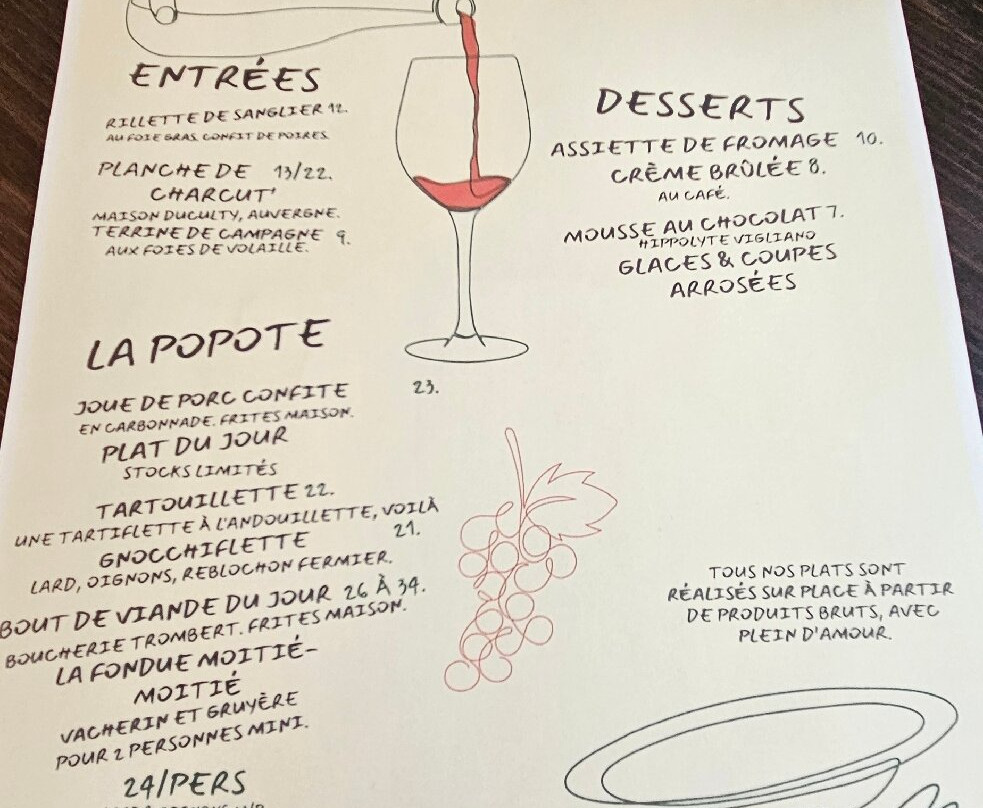 ENTRÉES
RILLETTE DE SANGLIER 12.
AU FOIE GRAS. CONFIT DE POIRES.
PLANCHE DE 13/22.
CHARCUT'
MAISON DUCULTY, AUVERGNE.
TERRINE DE CAMPAGNE 9.
AUX FOIES DE VOLAILLE.
LA POPOTE
JOUE DE PORC CONFITE 23.
EN CARBONNADE. FRITES MAISON.
PLAT DU JOUR
STOCKS LIMITÉS
TARTOUILLETTE 22.
UNE TARTIFLETTE À L'ANDOUILLETTE, VOILÀ
GNOCCHIFLETTE 21.
LARD, OIGNONS, REBLOCHON FERMIER.
BOUT DE VIANDE DU JOUR 26 À 34.
BOUCHERIE TROMBERT. FRITES MAISON.
LA FONDUE MOITIÉ-
MOITIÉ
VACHERIN ET GRUYÈRE
POUR 2 PERSONNES MINI.
24/PERS
DESSERTS
ASSIETTE DE FROMAGE 10.
CRÈME BRÛLÉE 8.
AU CAFÉ.
MOUSSE AU CHOCOLAT 7.
HIPPOLYTE VIGLIANO
GLACES & COUPES
ARROSÉES
TOUS NOS PLATS SONT
RÉALISÉS SUR PLACE À PARTIR
DE PRODUITS BRUTS, AVEC
PLEIN D'AMOUR.